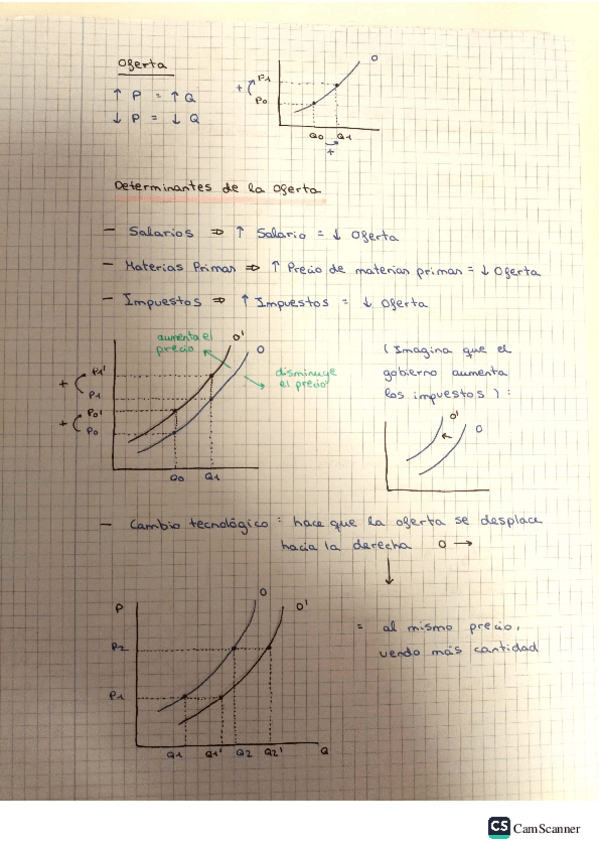 Oferta
↑ P = ↑ Q
↓ P = ↓ Q
O
+
P1
P0
Q0 Q1
+
Determinantes de la oferta
- Salarios ⇒ ↑ Salario = ↓ Oferta
- Materias Primas ⇒ ↑ Precio de materias primas = ↓ Oferta
- Impuestos ⇒ ↑ Impuestos = ↓ Oferta
aumenta el
precio
O'
O
disminuye
el precio
+
P1'
P1
+
P0'
P0
Q0
Q1
(Imagina que el
gobierno aumenta
los impuestos):
O'
O
- Cambio tecnológico: hace que la oferta se desplace
hacia la derecha O →
P
O
O'
P2
P1
Q1 Q1' Q2 Q2' Q
= al mismo precio,
vendo más cantidad
CS CamScanner